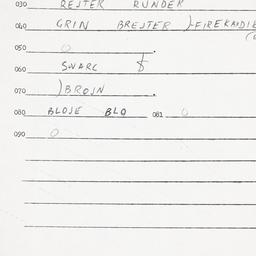 030 REJTER RUNDER
040 GRIN BREJTER )-FIREKANDIE
050 0 .
060 SWARC $
070 )BROJN .
080 BLOJE BLO 081 0
090 0